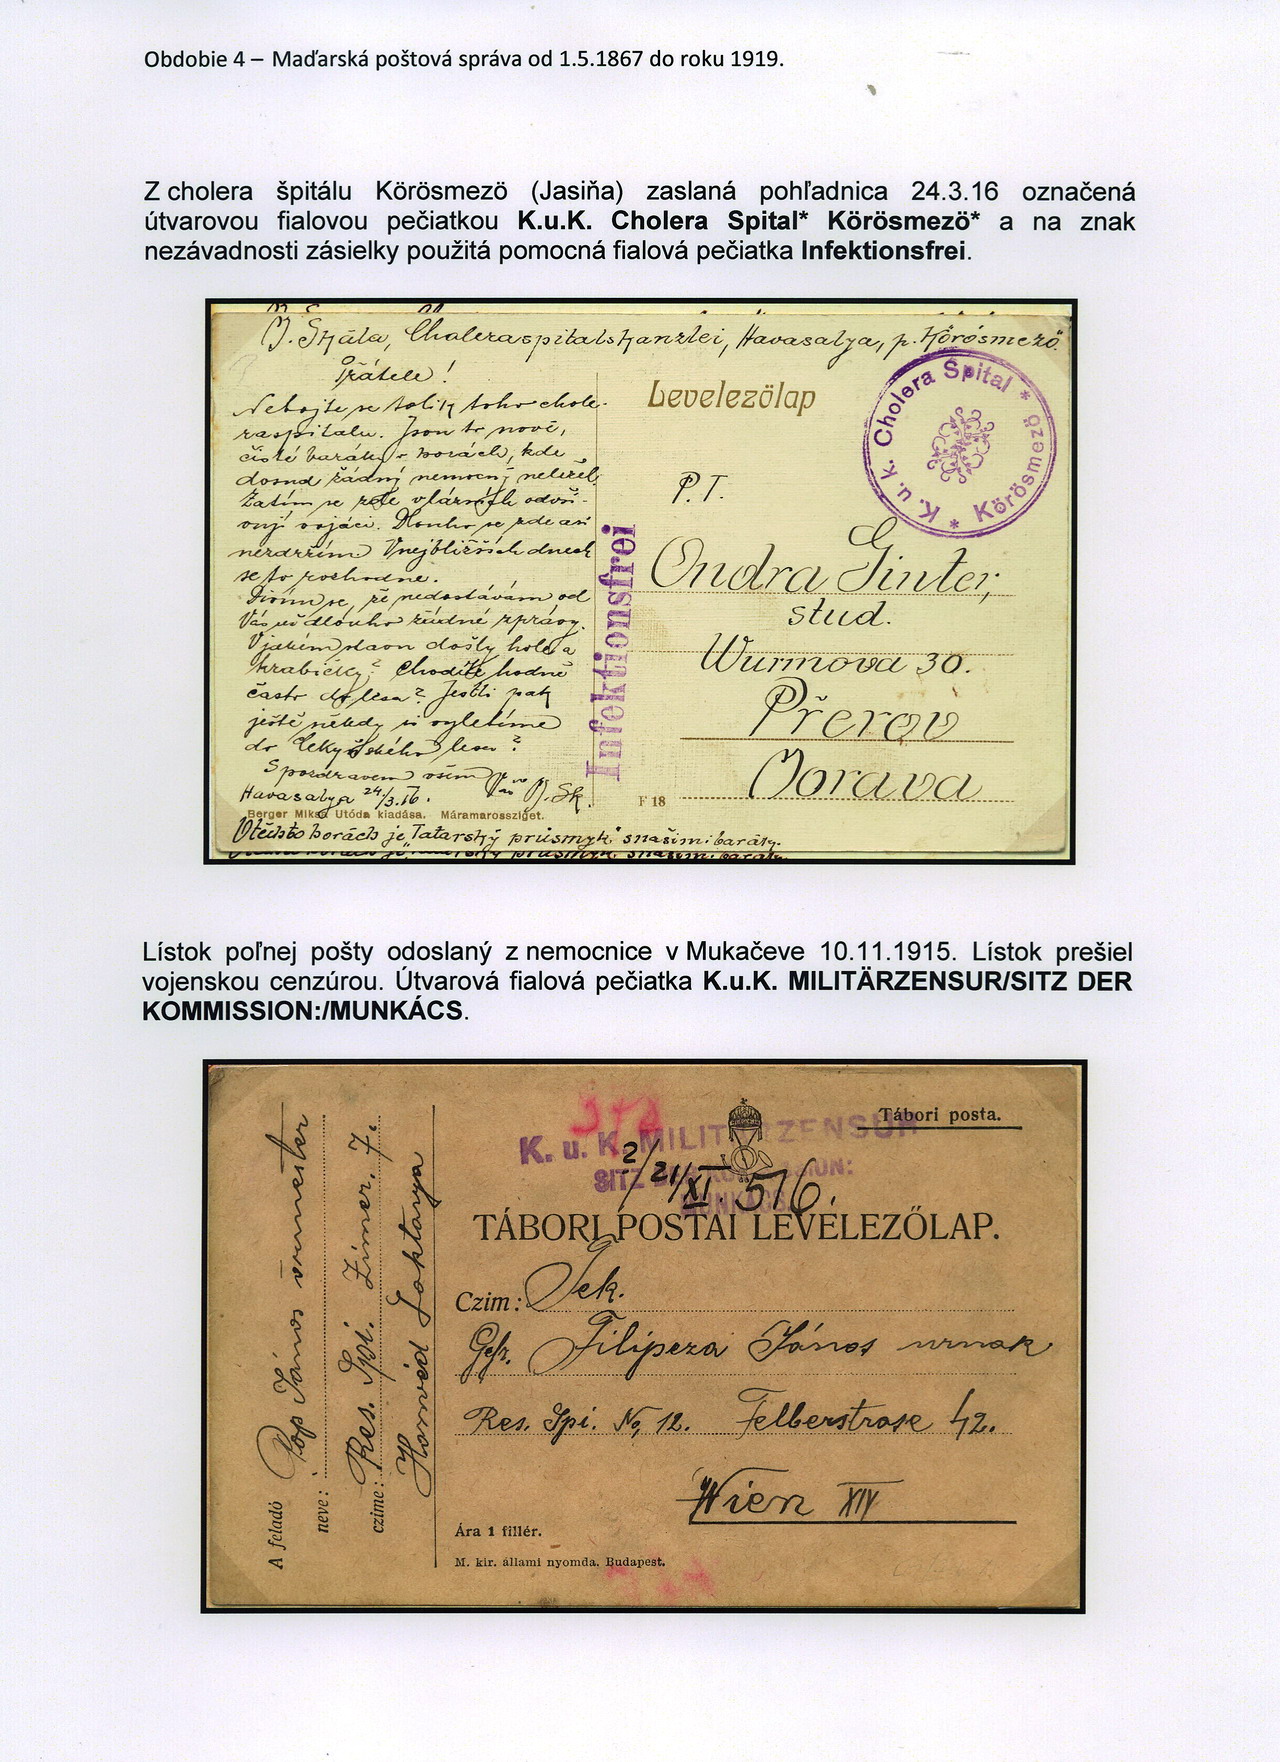 Obdobie 4 – Maďarská poštová správa od 1.5.1867 do roku 1919.
Z cholera špitálu Körösmezö (Jasiňa) zaslaná pohľadnica 24.3.16 označená
útvarovou fialovou pečiatkou K.u.K. Cholera Spital* Körösmezö* a na znak
nezávadnosti zásielky použitá pomocná fialová pečiatka Infektionsfrei.
J. Skála, Choleraspitalskanzlei, Havasalya, p. Körösmező.
Přátelé!
Nebojte se tolik toho chole-
raspitalu. Jsou to nové,
čisté baráky v horách, kde
dosud řádný nemocný neležel.
Zatím se zde odvši-
vují vojáci. Dlouho se zde asi
nezdržím. V nejbližších dnech
se to rozhodne.
Divím se, že nedostávám od
Vás už dlouho žádné zprávy.
V jakém stavu došly
krabičky? Chodíte hodně
často do lesa? Jestli pak
ještě někdy si vyletíme
do lesa?
S pozdravem všem Váš J. Sk.
Havasalya 24/3.16.
Berger Miksa Utóda kiadása. Máramarossziget.
V těchto horách je „Tatarský průsmyk" s našimi baráky.
Levelezőlap
K. u. K. Cholera Spital * Körösmező *
Infektionsfrei
P. T.
Ondra Ginter,
stud.
Wurmova 30.
Přerov
Morava
F 18
Lístok poľnej pošty odoslaný z nemocnice v Mukačeve 10.11.1915. Lístok prešiel
vojenskou cenzúrou. Útvarová fialová pečiatka K.u.K. MILITÄRZENSUR/SITZ DER
KOMMISSION:/MUNKÁCS.
Tábori posta.
K. u. K. MILITÄRZENSUR
SITZ DER KOMMISSION:
MUNKÁCS
2/21/XI. 516.
TÁBORI POSTAI LEVELEZŐLAP.
Czim: Tek.
Gefr. Filipeza János urnak
Res. Spi. No, 12. Felberstrase 42.
Wien XIV
Ára 1 fillér.
M. kir. állami nyomda. Budapest.
A feladó
neve: Pop János őrmester
czime: Res. Spi. Zimer. 7.
Honvéd Laktanya